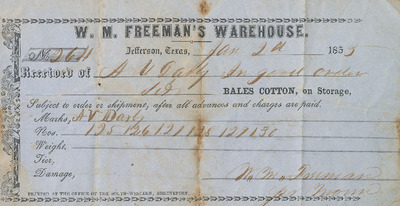 W. M. FREEMAN'S WAREHOUSE.
Jefferson, Texas, Jan 2d 1855
No. 2611
Received of A V Darby In good order
BALES COTTON, on Storage,
Subject to order or shipment, after all advances and charges are paid.
Marks, A V Darby
Nos. 125 126 121 128 129 130
Weight,
Tier,
Damage, W. M. Freeman
PRINTED AT THE OFFICE OF THE SOUTH-WESTERN, SHREVEPORT.